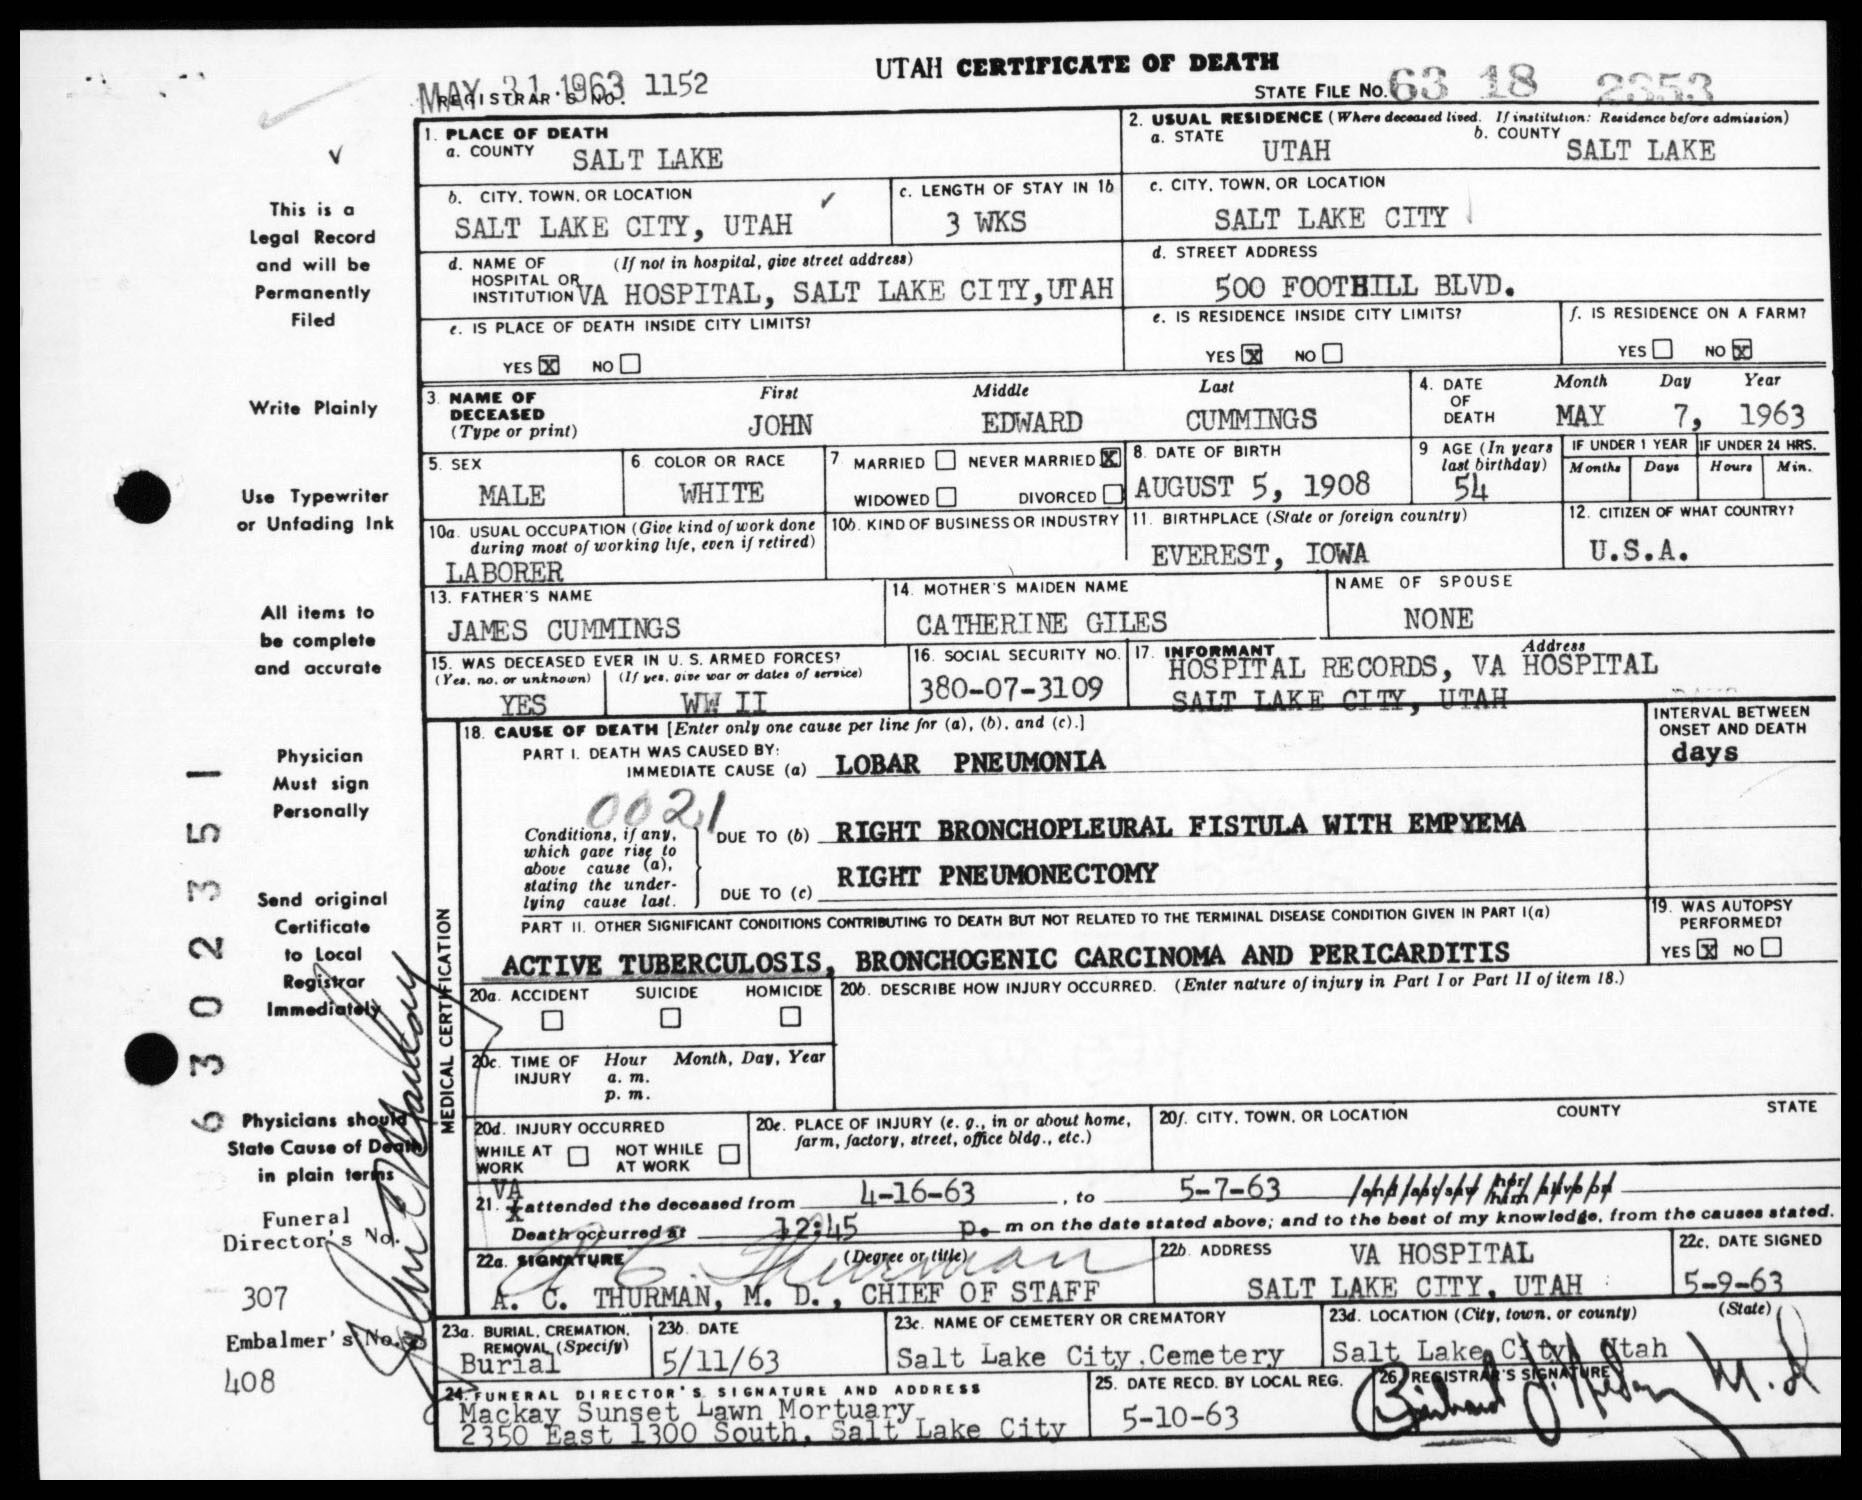 UTAH CERTIFICATE OF DEATH
MAY 31 1963 1152
REGISTRAR'S NO.
STATE FILE NO. 63 18 2353
1. PLACE OF DEATH
a. COUNTY SALT LAKE
2. USUAL RESIDENCE (Where deceased lived. If institution: Residence before admission)
a. STATE UTAH b. COUNTY SALT LAKE
b. CITY, TOWN, OR LOCATION SALT LAKE CITY, UTAH
c. LENGTH OF STAY IN 1b 3 WKS
c. CITY, TOWN, OR LOCATION SALT LAKE CITY
d. NAME OF HOSPITAL OR INSTITUTION (If not in hospital, give street address) VA HOSPITAL, SALT LAKE CITY, UTAH
d. STREET ADDRESS 500 FOOTHILL BLVD.
e. IS PLACE OF DEATH INSIDE CITY LIMITS?
YES X NO
e. IS RESIDENCE INSIDE CITY LIMITS?
YES X NO
f. IS RESIDENCE ON A FARM?
YES NO X
3. NAME OF DECEASED (Type or print)
First Middle Last
JOHN EDWARD CUMMINGS
4. DATE OF DEATH Month Day Year
MAY 7, 1963
5. SEX MALE
6. COLOR OR RACE WHITE
7. MARRIED NEVER MARRIED X
WIDOWED DIVORCED
8. DATE OF BIRTH AUGUST 5, 1908
9 AGE (In years last birthday) 54
IF UNDER 1 YEAR Months Days
IF UNDER 24 HRS. Hours Min.
10a. USUAL OCCUPATION (Give kind of work done during most of working life, even if retired)
LABORER
10b. KIND OF BUSINESS OR INDUSTRY
11. BIRTHPLACE (State or foreign country)
EVEREST, IOWA
12. CITIZEN OF WHAT COUNTRY?
U.S.A.
13. FATHER'S NAME
JAMES CUMMINGS
14. MOTHER'S MAIDEN NAME
CATHERINE GILES
NAME OF SPOUSE
NONE
15. WAS DECEASED EVER IN U. S. ARMED FORCES?
(Yes, no, or unknown) (If yes, give war or dates of service)
YES WW II
16. SOCIAL SECURITY NO.
380-07-3109
17. INFORMANT Address
HOSPITAL RECORDS, VA HOSPITAL
SALT LAKE CITY, UTAH
MEDICAL CERTIFICATION
18. CAUSE OF DEATH [Enter only one cause per line for (a), (b), and (c).]
INTERVAL BETWEEN ONSET AND DEATH
PART I. DEATH WAS CAUSED BY:
IMMEDIATE CAUSE (a) LOBAR PNEUMONIA
days
0021
Conditions, if any, which gave rise to above cause (a), stating the underlying cause last.
DUE TO (b) RIGHT BRONCHOPLEURAL FISTULA WITH EMPYEMA
DUE TO (c) RIGHT PNEUMONECTOMY
PART II. OTHER SIGNIFICANT CONDITIONS CONTRIBUTING TO DEATH BUT NOT RELATED TO THE TERMINAL DISEASE CONDITION GIVEN IN PART I(a)
ACTIVE TUBERCULOSIS, BRONCHOGENIC CARCINOMA AND PERICARDITIS
19. WAS AUTOPSY PERFORMED?
YES X NO
20a. ACCIDENT SUICIDE HOMICIDE
20b. DESCRIBE HOW INJURY OCCURRED. (Enter nature of injury in Part I or Part II of item 18.)
20c. TIME OF INJURY Hour Month, Day, Year
a. m.
p. m.
20d. INJURY OCCURRED
WHILE AT WORK NOT WHILE AT WORK
20e. PLACE OF INJURY (e. g., in or about home, farm, factory, street, office bldg., etc.)
20f. CITY, TOWN, OR LOCATION COUNTY STATE
VA
21. I attended the deceased from 4-16-63, to 5-7-63 and last saw her him alive on
Death occurred at 12:45 p. m on the date stated above; and to the best of my knowledge, from the causes stated.
22a. SIGNATURE (Degree or title)
A C Thurman
A. C. THURMAN, M. D., CHIEF OF STAFF
22b. ADDRESS VA HOSPITAL
SALT LAKE CITY, UTAH
22c. DATE SIGNED
5-9-63
23a. BURIAL, CREMATION, REMOVAL (Specify)
Burial
23b. DATE
5/11/63
23c. NAME OF CEMETERY OR CREMATORY
Salt Lake City Cemetery
23d. LOCATION (City, town, or county) (State)
Salt Lake City Utah
24. FUNERAL DIRECTOR'S SIGNATURE AND ADDRESS
Mackay Sunset Lawn Mortuary
2350 East 1300 South, Salt Lake City
25. DATE RECD. BY LOCAL REG.
5-10-63
26 REGISTRAR'S SIGNATURE
M.D
This is a
Legal Record
and will be
Permanently
Filed
Write Plainly
Use Typewriter
or Unfading Ink
All items to
be complete
and accurate
Physician
Must sign
Personally
Send original
Certificate
to Local
Registrar
Immediately
Physicians should
State Cause of Death
in plain terms
Funeral
Director's No.
307
Embalmer's No.
408
6302351